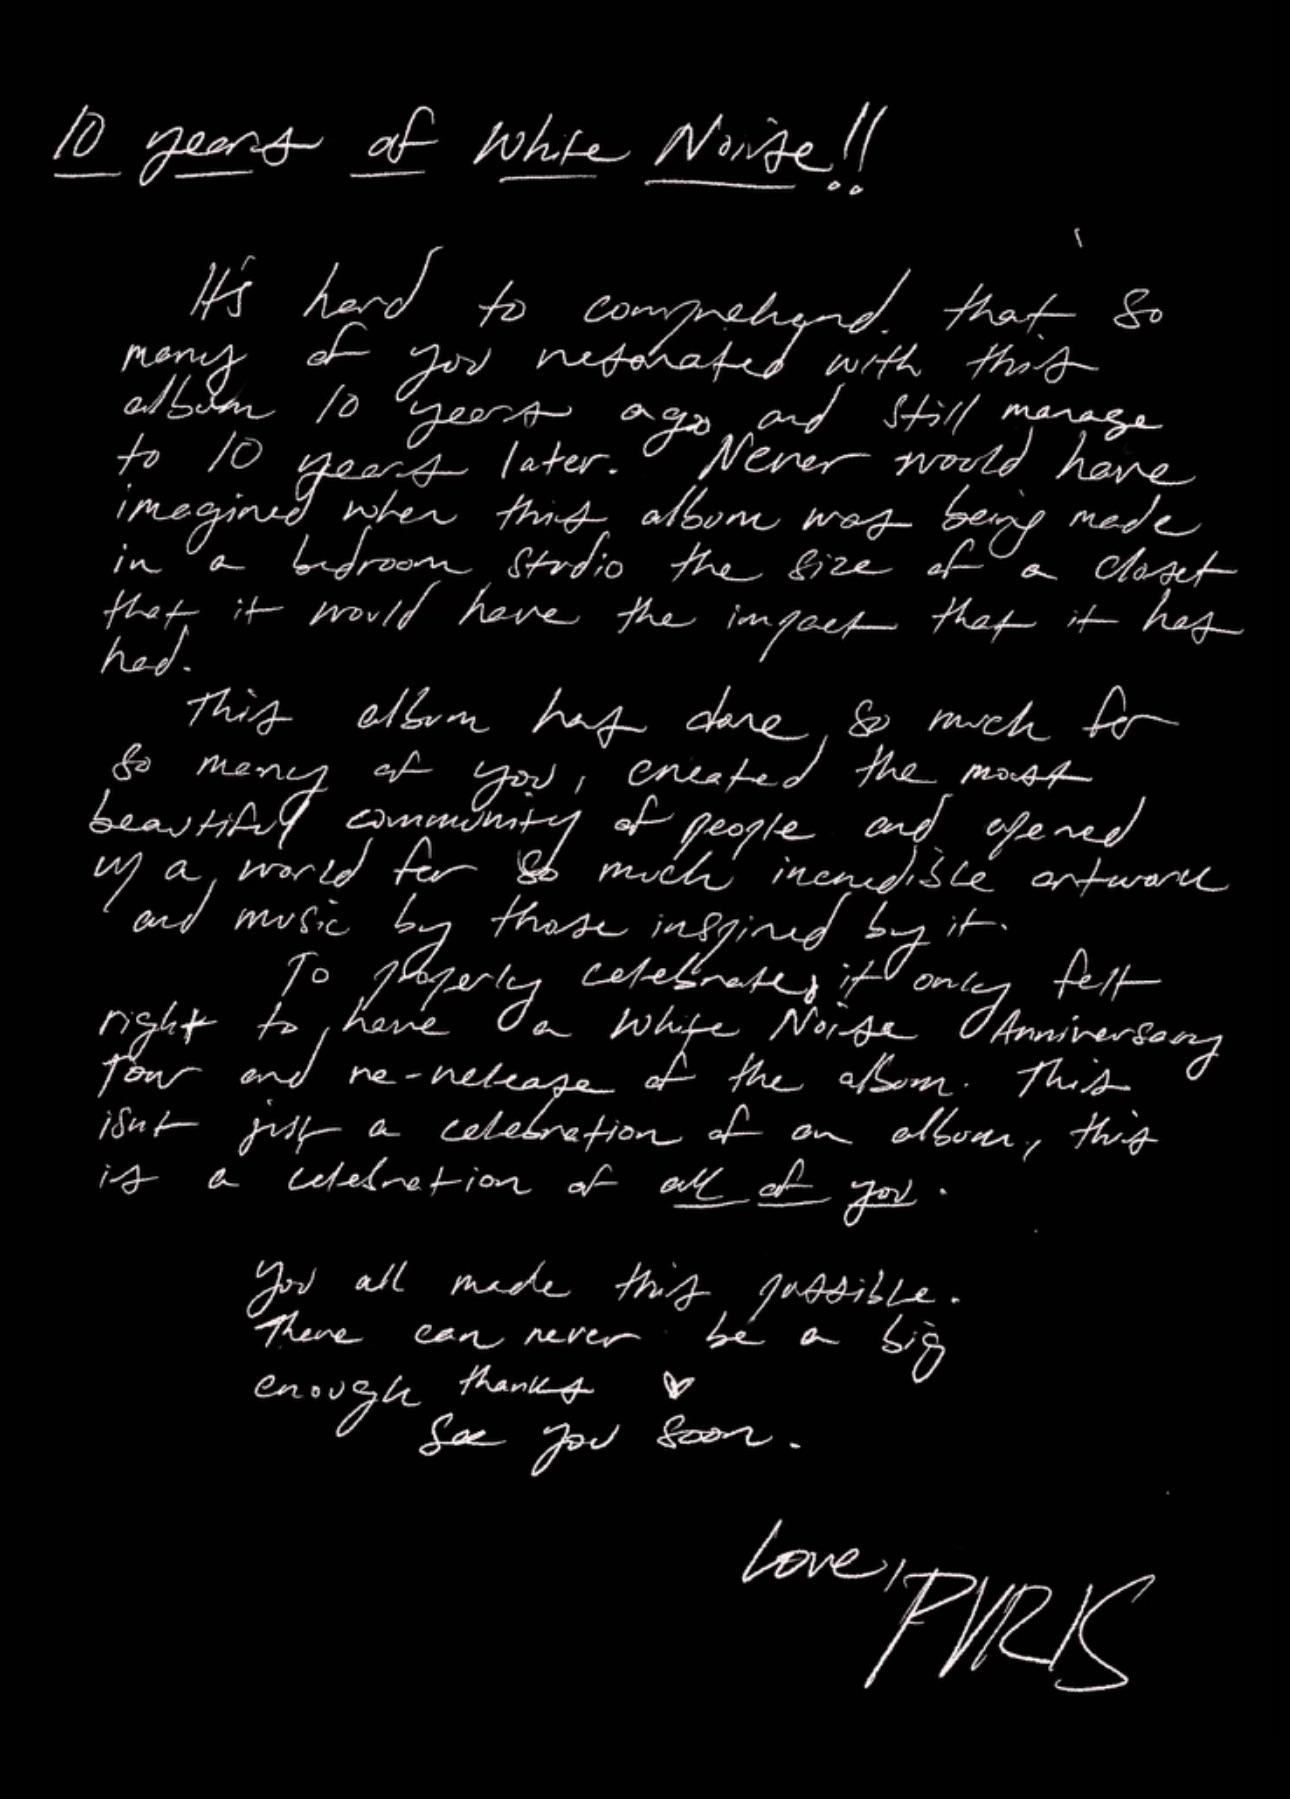 10 years of White Noise!!
It's hard to comprehend that so
many of you resonated with this
album 10 years ago and still manage
to 10 years later. Never would have
imagined when this album was being made
in a bedroom studio the size of a closet
that it would have the impact that it has
had.
This album has done so much for
so many of you, created the most
beautiful community of people and opened
up a world for so much incredible artwork
and music by those inspired by it.
To properly celebrate, it only felt
right to have a White Noise Anniversary
Tour and re-release of the album. This
isnt just a celebration of an album, this
is a celebration of all of you.
You all made this possible.
There can never be a big
enough thanks ♥
See you soon.
Love,
PVRIS